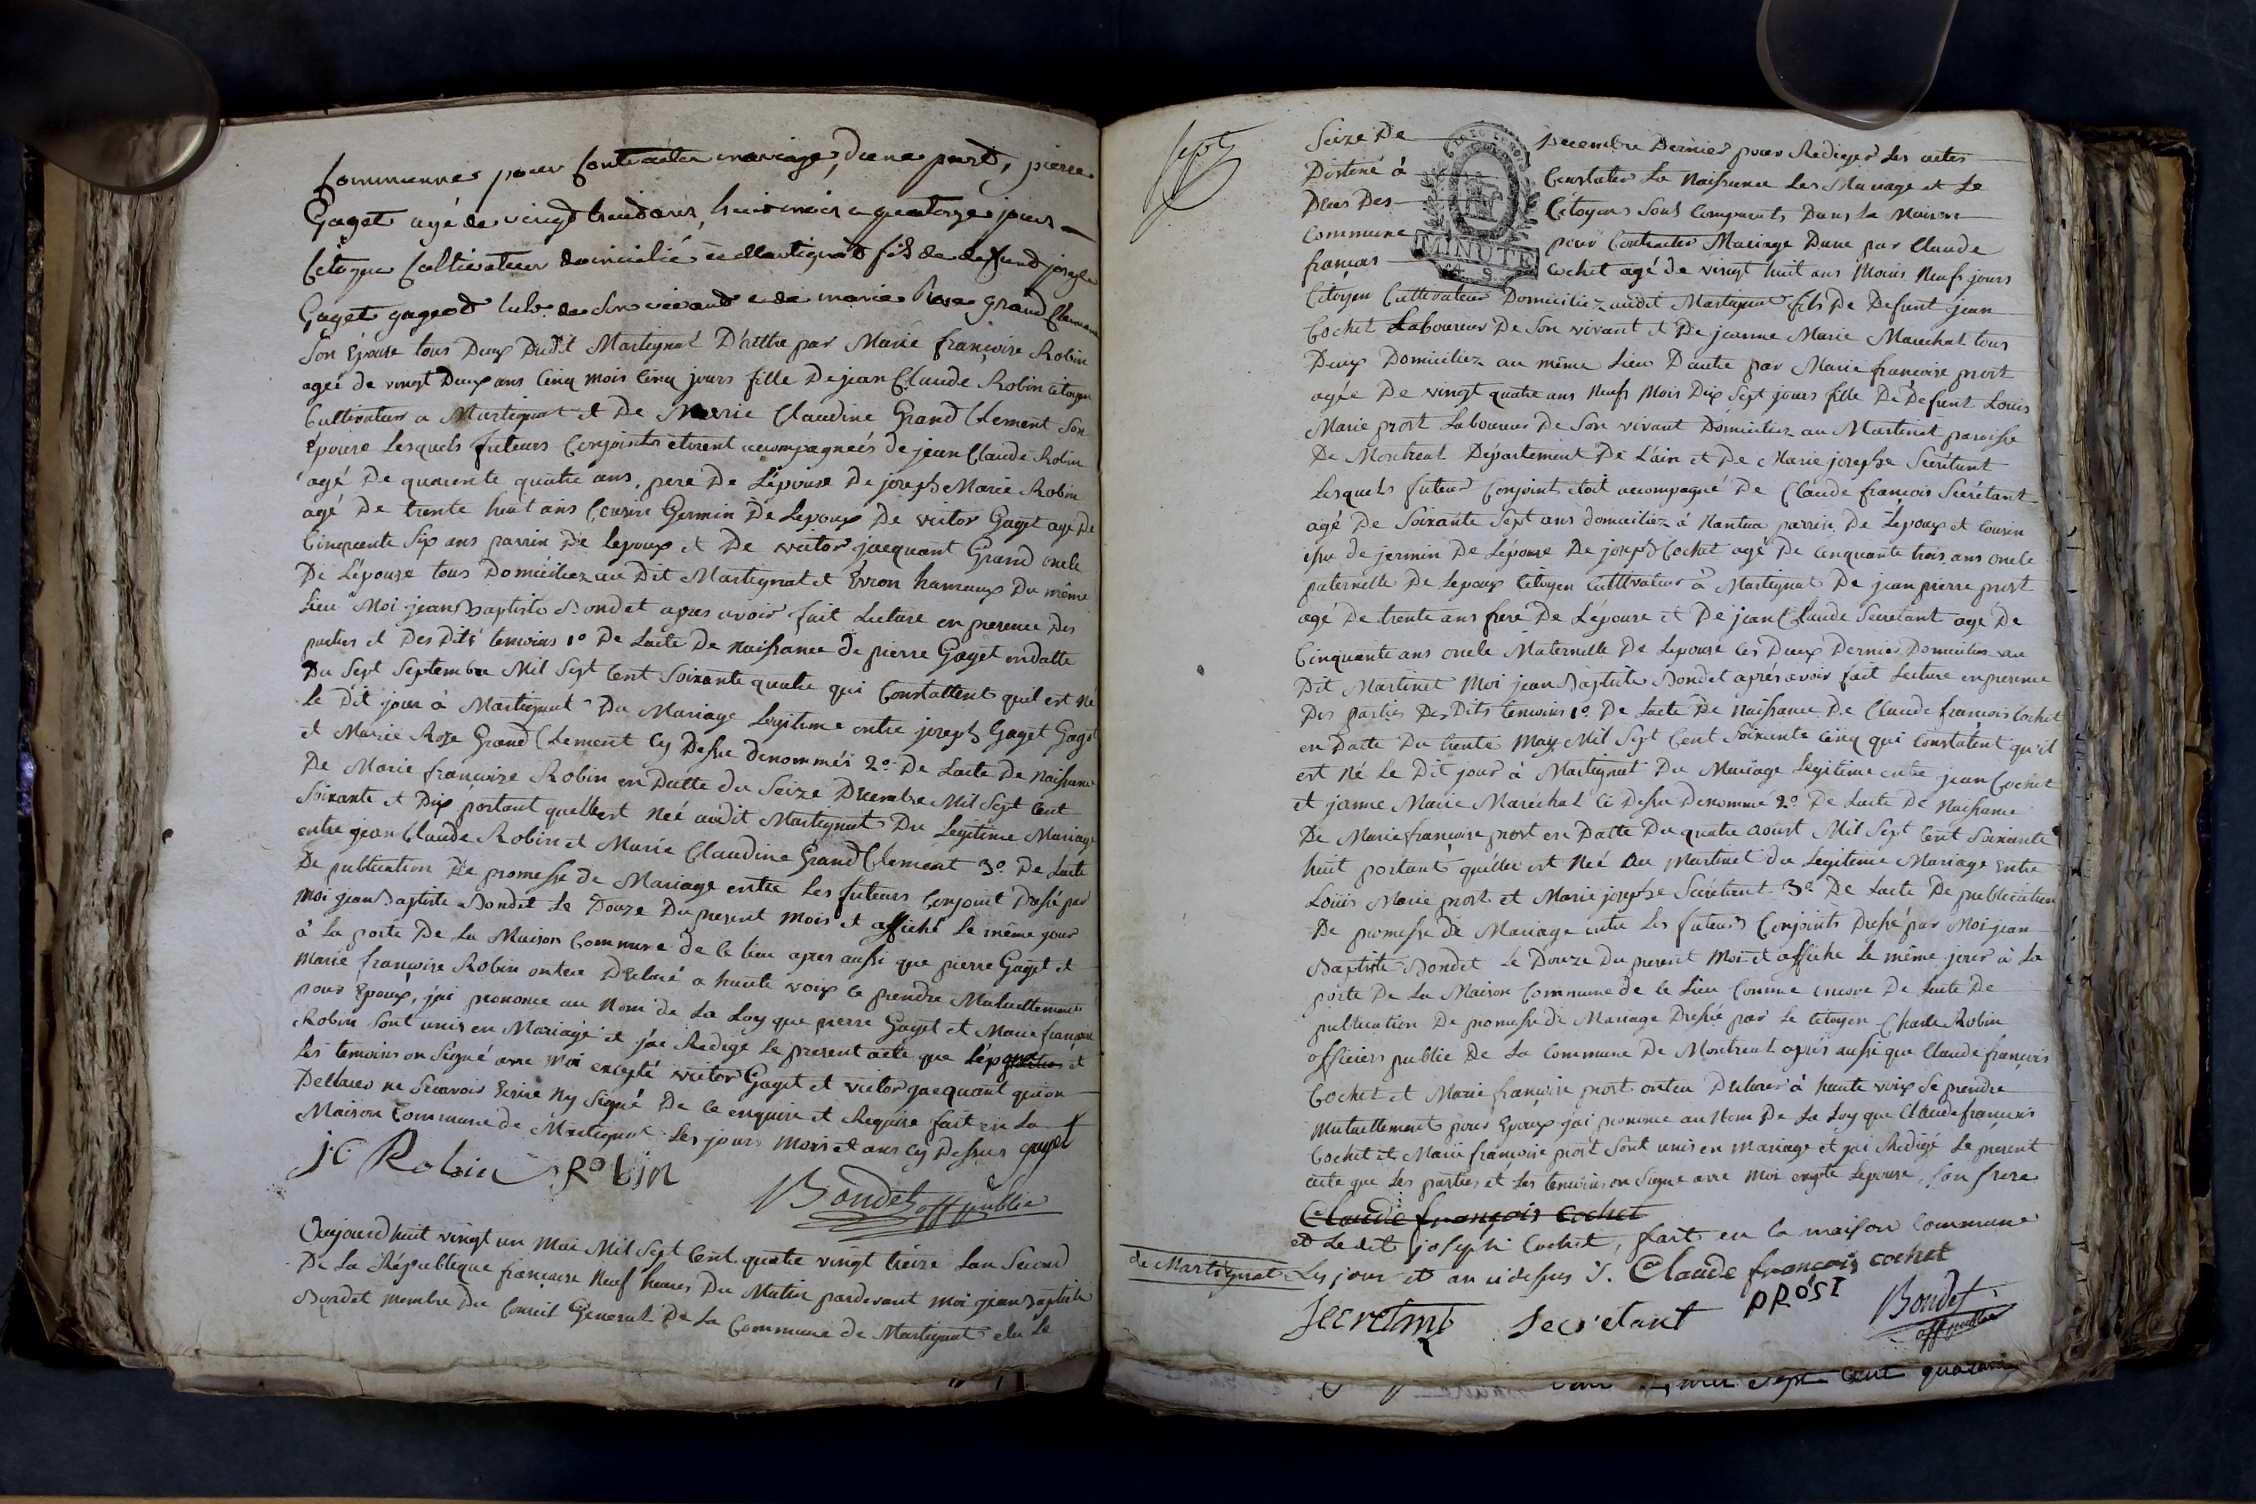 Commune pour Contracter mariage, d'une part, pierre
Gaget agé de vingt huit ans, huit mois quatorze jours
Citoyen Cultivateur domicilié à Martignat fils de defunt joseph
Gaget gaget de son vivant e de marie Rose Grand Clement
Son Epouse tous Deux Dudit Martignat D'autre par Marie françoise Robin
agée de vingt Deux ans Cinq mois Cinq jours fille De jean Claude Robin Citoyen
Cultivateur a Martignat et De Marie Claudine Grand Clement Son
Epouse Lesquels futeurs Conjoints étoient accompagneés de jean Claude Robin
agé De quarente quatre ans, pere De L'épouse De joseph Marie Robin
agé De trente huit ans Cousin Germin De Lepoux De victor Gaget agé De
Cinquante Six ans parrin De lepoux et De victor jacquant Grand oncle
De L'épouse tous Domiciliez au Dit Martignat et Evron hameaux Du même
Lieu Moi jean Baptiste Bondet apres avoir fait Lecture en presence Des
parties et Des Dits temoins 1o De Lacte De naissance de pierre Gaget en datte
Du Sept Septembre Mil Sept Cent Soixante quatre qui Constattent quil est Né
Le Dit jour à Martignat Du Mariage Legitime entre joseph Gaget Gaget
et Marie Rose Grand Clement Cy Dessus denommés 2o De Lacte De Naissance
De Marie francoise Robin en Datte du Seize Decembre Mil Sept Cent
Soixante et Dix portant quelle est Neé audit Martignat Du Legitime Mariage
entre jean Claude Robin et Marie Claudine Grand Clement 3o De Lacte
De publication De promesse de Mariage entre Les futeurs Conjoint Dressé par
Moi jean Baptiste Bondet Le Douze Du present Mois et affiché Le même jour
à La porte De La Maison Commune de Ce lieu apres aussi que pierre Gaget et
Marie francoise Robin onteu Déclaré a haute voix Ce prendre Mutuellement
pour Epoux, j'ai prononcé au Nom de La Loy que pierre Gaget et Marie francoise
Robin Sont unis en Mariage et j'ai Redigé Le present acte que et
Les temoins on Signé avec Moi excepté victor Gaget et victor jacquant qui on
Declarer ne Scavoir Ecrire Ny Signé De Ce enquire et Requise fait en La
Maison Commune de Martignat Les jours Mois et ans Cy Dessus gaget
J C Robin RobiN
Bondet off publie
Aujourdhuit vingt un Mai Mil Sept Cent quatre vingt treize Lan Second
De La République francaise Neuf heures Du Matin pardevant Moi jean Baptiste
Bondet Membre Du Conseil General De La Commune de Martignat elu Le
Seize De Decembre Dernier pour Rediger Les actes
Destiné à Constater La Naissance Les Mariage et Le
Deces Des Citoyens Sont Comparents Dans La Maison
Commune pour Contracter Mariage Dune par Claude
francois Cochet agé de vingt huit ans Moins Neuf jours
MINUTE
Citoyen Cultivateur Domiciliez audit Martignat fils De Defunt jean
Cochet Laboureur De Son vivant et De jeanne Marie Marechal tous
Deux Domiciliez au même Lieu D'autre par Marie francoise prost
agée De vingt quatre ans Neuf Mois Dix Sept jours fille De Defunt Louis
Marie prost Laboureur De Son vivant Domiciliez au Martinet paroisse
De Montreal Département De L'ain et De Marie josephe Secrétant
Lesquels futeurs Conjoint étoit accompagné De Claude francois Secrétant
agé De Soixante Sept ans domiciliez à Nantua parrin De L'époux et Cousin
issu de jermin De Lépouse De joseph Cochet agé De Cinquante trois ans oncle
paternelle De Lepoux Citoyen Cultivateur à Martignat De jean pierre prost
agé De trente ans frere De L'épouse et De jean Claude Secretant agé De
Cinquante ans oncle Maternelle De Lepouse Ces Deux Dernier Domicilies au
Dit Martinet Moi jean Baptiste Bondet après avoir fait Lecture en presence
Des parties Des Dits temoins 1o De Lacte De Naissance De Claude françois Cochet
en Datte Du trente May Mil Sept Cent Soixante Cinq qui Constatent qu'il
est Né Le Dit jour à Martignat Du Mariage Legitime entre jean Cochet
et janne Marie Maréchal Ci Dessu Denommé 2o De Lacte De Naissance
De Marie francoise prost en Datte Du quatre aoust Mil Sept Cent Soixante
huit portant qu'elle est Neé au Martinet du Legitime Mariage Entre
Louis Marie prost et Marie josephe Secrétant 3o De Lacte De publication
De promesse de Mariage entre Les futeurs Conjoints Dressé par Moi jean
Baptiste Bondet Le Douze Du present Mois et affiche Le même jour à La
porte De La Maison Commune de Ce Lieu Comme encore De Lacte De
publication De promesse de Mariage Dressé par Le Citoyen Charle Robin
officiers public De La Commune De Montreal après aussi que Claude françois
Cochet et Marie francoise prost onteu Declarer à haute voix Se prendre
Mutuellement pour Epoux jai prononcé au Nom De La Loy que Claude francois
Cochet et Marie françoise prost Sont unis en Mariage et jai Redigé Le présent
acte que Les parties et Les temoins on Signe avec Moi excepte Lepouse, Son frere
Claude françois Cochet
et Le dit joseph Cochet, fait en la maison Commune
de Martignat Les jour et an cidessus /. Claude françois cochet
Secretant Secrétant PROST Bondet
off publie
sept Cent quarante